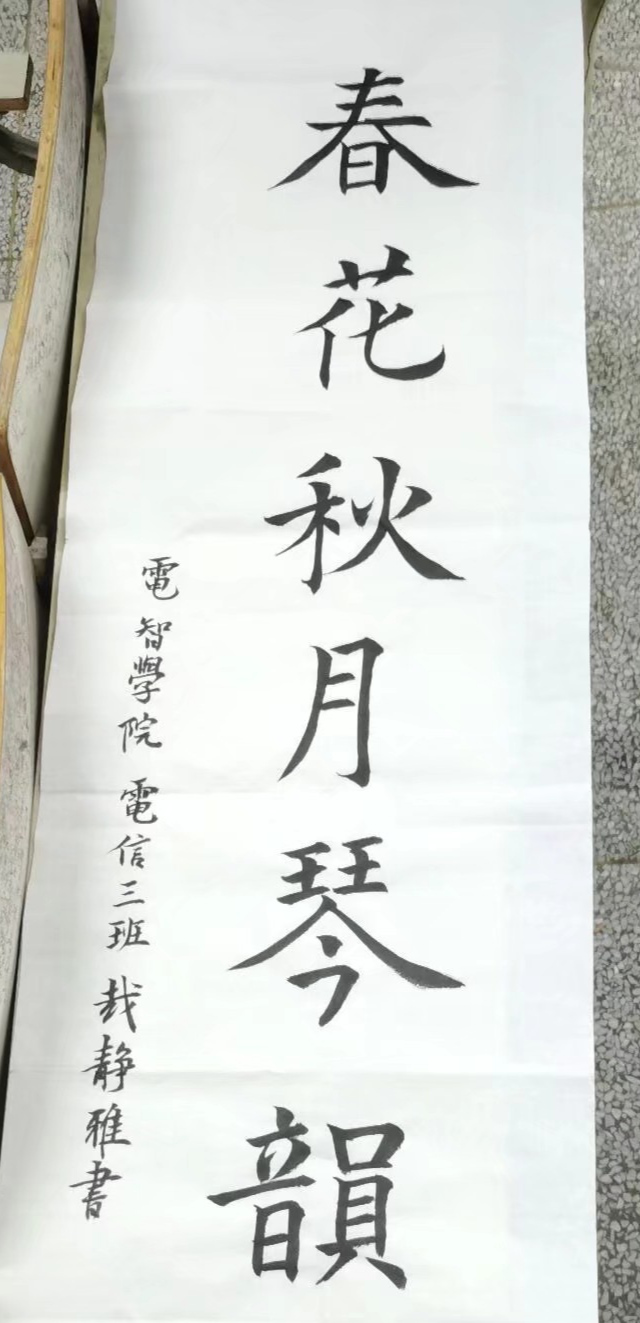 春花秋月琴韻
電智學院 電信三班 哉靜雅書